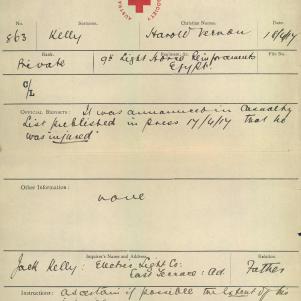 AUSTRA
SOCIETY
No. SURNAME. CHRISTIAN NAMES.
563 Kelly Harold Vernon 18/4/17
RANK. REGIMENT, &c. FILE NO.
Private 9th Light Horse Reinforcements
Egypt.
OFFICIAL REPORTS: It was announced in Casualty
List published in press 17/4/17 that he
was "injured"
Other Information:
none
Inquirer's Name and Address. Relation:
Jack Kelly: Electric Light Co: Father
East Terrace: Ad.
Instructions: ascertain if possible the extent of his